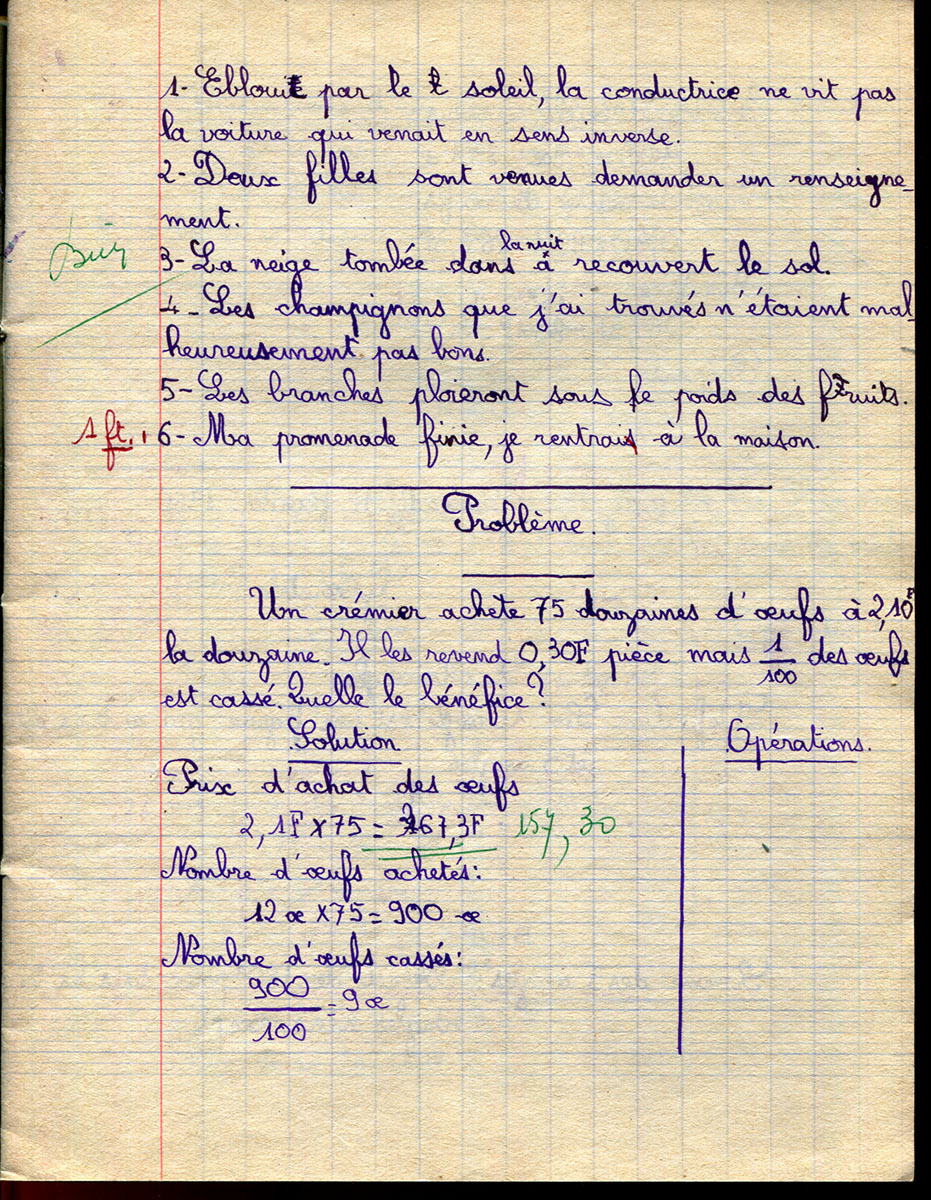 1- Eblouie par le soleil, la conductrice ne vit pas
la voiture qui venait en sens inverse.
2- Deux filles sont venues demander un renseigne-
ment.
Bien
la nuit
3- La neige tombée dans recouvert le sol.
4- Les champignons que j'ai trouvés n'étaient mal-
heureusement pas bons.
5- Les branches ploieront sous le poids des fruits.
1 ft. 6- Ma promenade finie, je rentrais à la maison.
Problème.
Un crémier achete 75 douzaines d'œufs à 2,10F
la douzaine. Il les revend 0,30F pièce mais 1/100 des œufs
est cassé. Quelle le bénéfice?
Solution Opérations.
Prix d'achat des œufs
2,1F x 75 = 267,3F 157,30
Nombre d'œufs achetés:
12 œ x 75 = 900 œ
Nombre d'œufs cassés:
900/100 = 9 œ